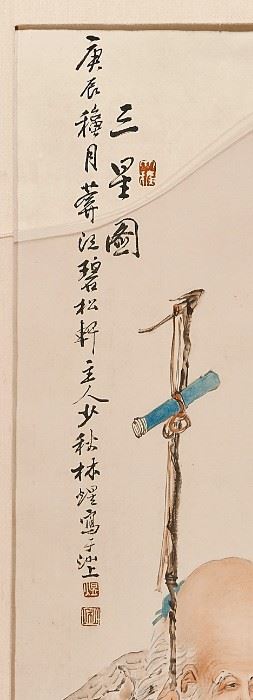 三星圖
庚辰穐月莽江碧松軒主人少秋林煜寫于沪上